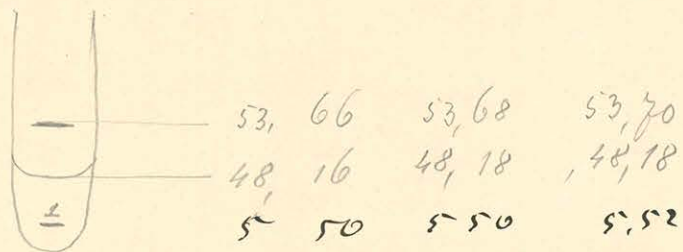 53, 66 53,68 53,70
48, 16 48,18 , 48,18
1
5 50 5 50 5.52